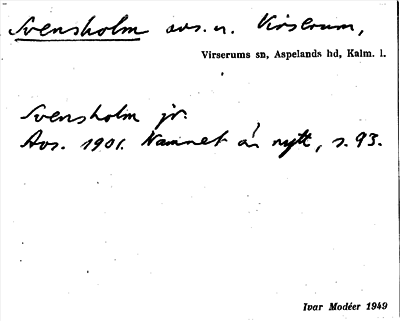 Svensholm avs. u. Virserum,
Virserums sn, Aspelands hd, Kalm. l.
Svensholm jr.
Avs. 1901. Namnet är nytt, s. 93.
Ivar Modéer 1949